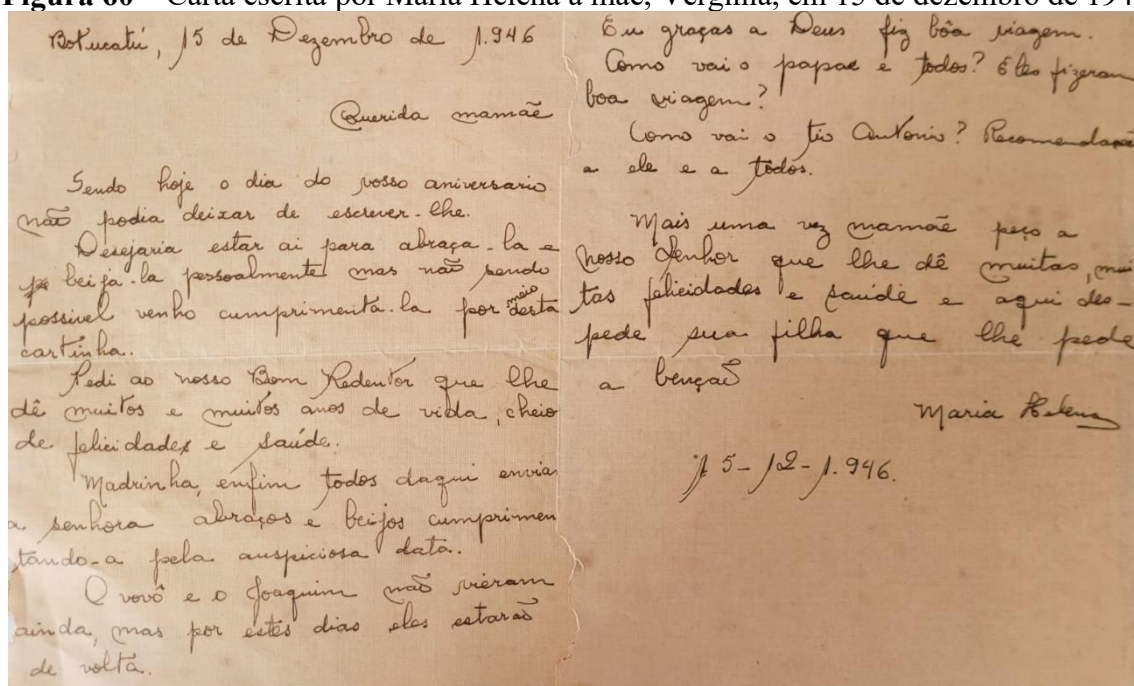 Figura 60 – Carta escrita por Maria Helena à mãe, Vergínia, em 15 de dezembro de 194
Botucatú, 15 de Dezembro de 1.946
Querida mamãe
Sendo hoje o dia do vosso aniversario
não podia deixar de escrever-lhe.
Desejaria estar ai para abraça-la e
beija-la pessoalmente mas não sendo
possivel venho cumprimentá-la por meio desta
cartinha.
Pedi ao nosso Bom Redentor que lhe
dê muitos e muitos anos de vida, cheio
de felicidades e saúde.
Madrinha, enfim todos daqui envia
a senhora abraços e beijos cumprimen
tando-a pela auspiciosa data.
O vovô e o Joaquim não vieram
ainda, mas por estes dias eles estarão
de volta.
Eu graças a Deus fiz bôa viagem.
Como vai o papae e todos? Eles fizeram
boa viagem?
Como vai o tio Antonio?
a ele e a todos.
Mais uma vez mamãe peço a
nosso Senhor que lhe dê muitas, mui
tas felicidades e saúde e aqui des-
pede sua filha que lhe pede
a benção
Maria Helena
15-12-1.946.